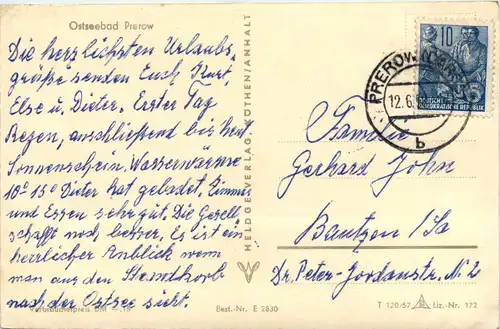 Ostseebad Prerow
Die herzlichsten Urlaubs-
grüße senden Euch Kurt,
Else u. Dieter. Erster Tag
Regen, anschließend bis heut
Sonnenschein. Wasserwärme
10° 15° Dieter hat gebadet. Zimmer
und Essen sehr gut. Die Gesell-
schaft noch besser. Es ist ein
herrlicher Anblick wenn
man aus den Strandkorb
nach der Ostsee sieht.
Verbraucherpreis DM -.15
HELDGE-VERLAG KÖTHEN/ANHALT
Best.-Nr. E 2830
10
DEUTSCHE
DEMOKRATISCHE REPUBLIK
PREROW
12.6.
b
Familie
Gerhard John
Bautzen / Sa
Dr. Peter-Jordanstr. N. 2
T 120/57 Liz.-Nr. 172